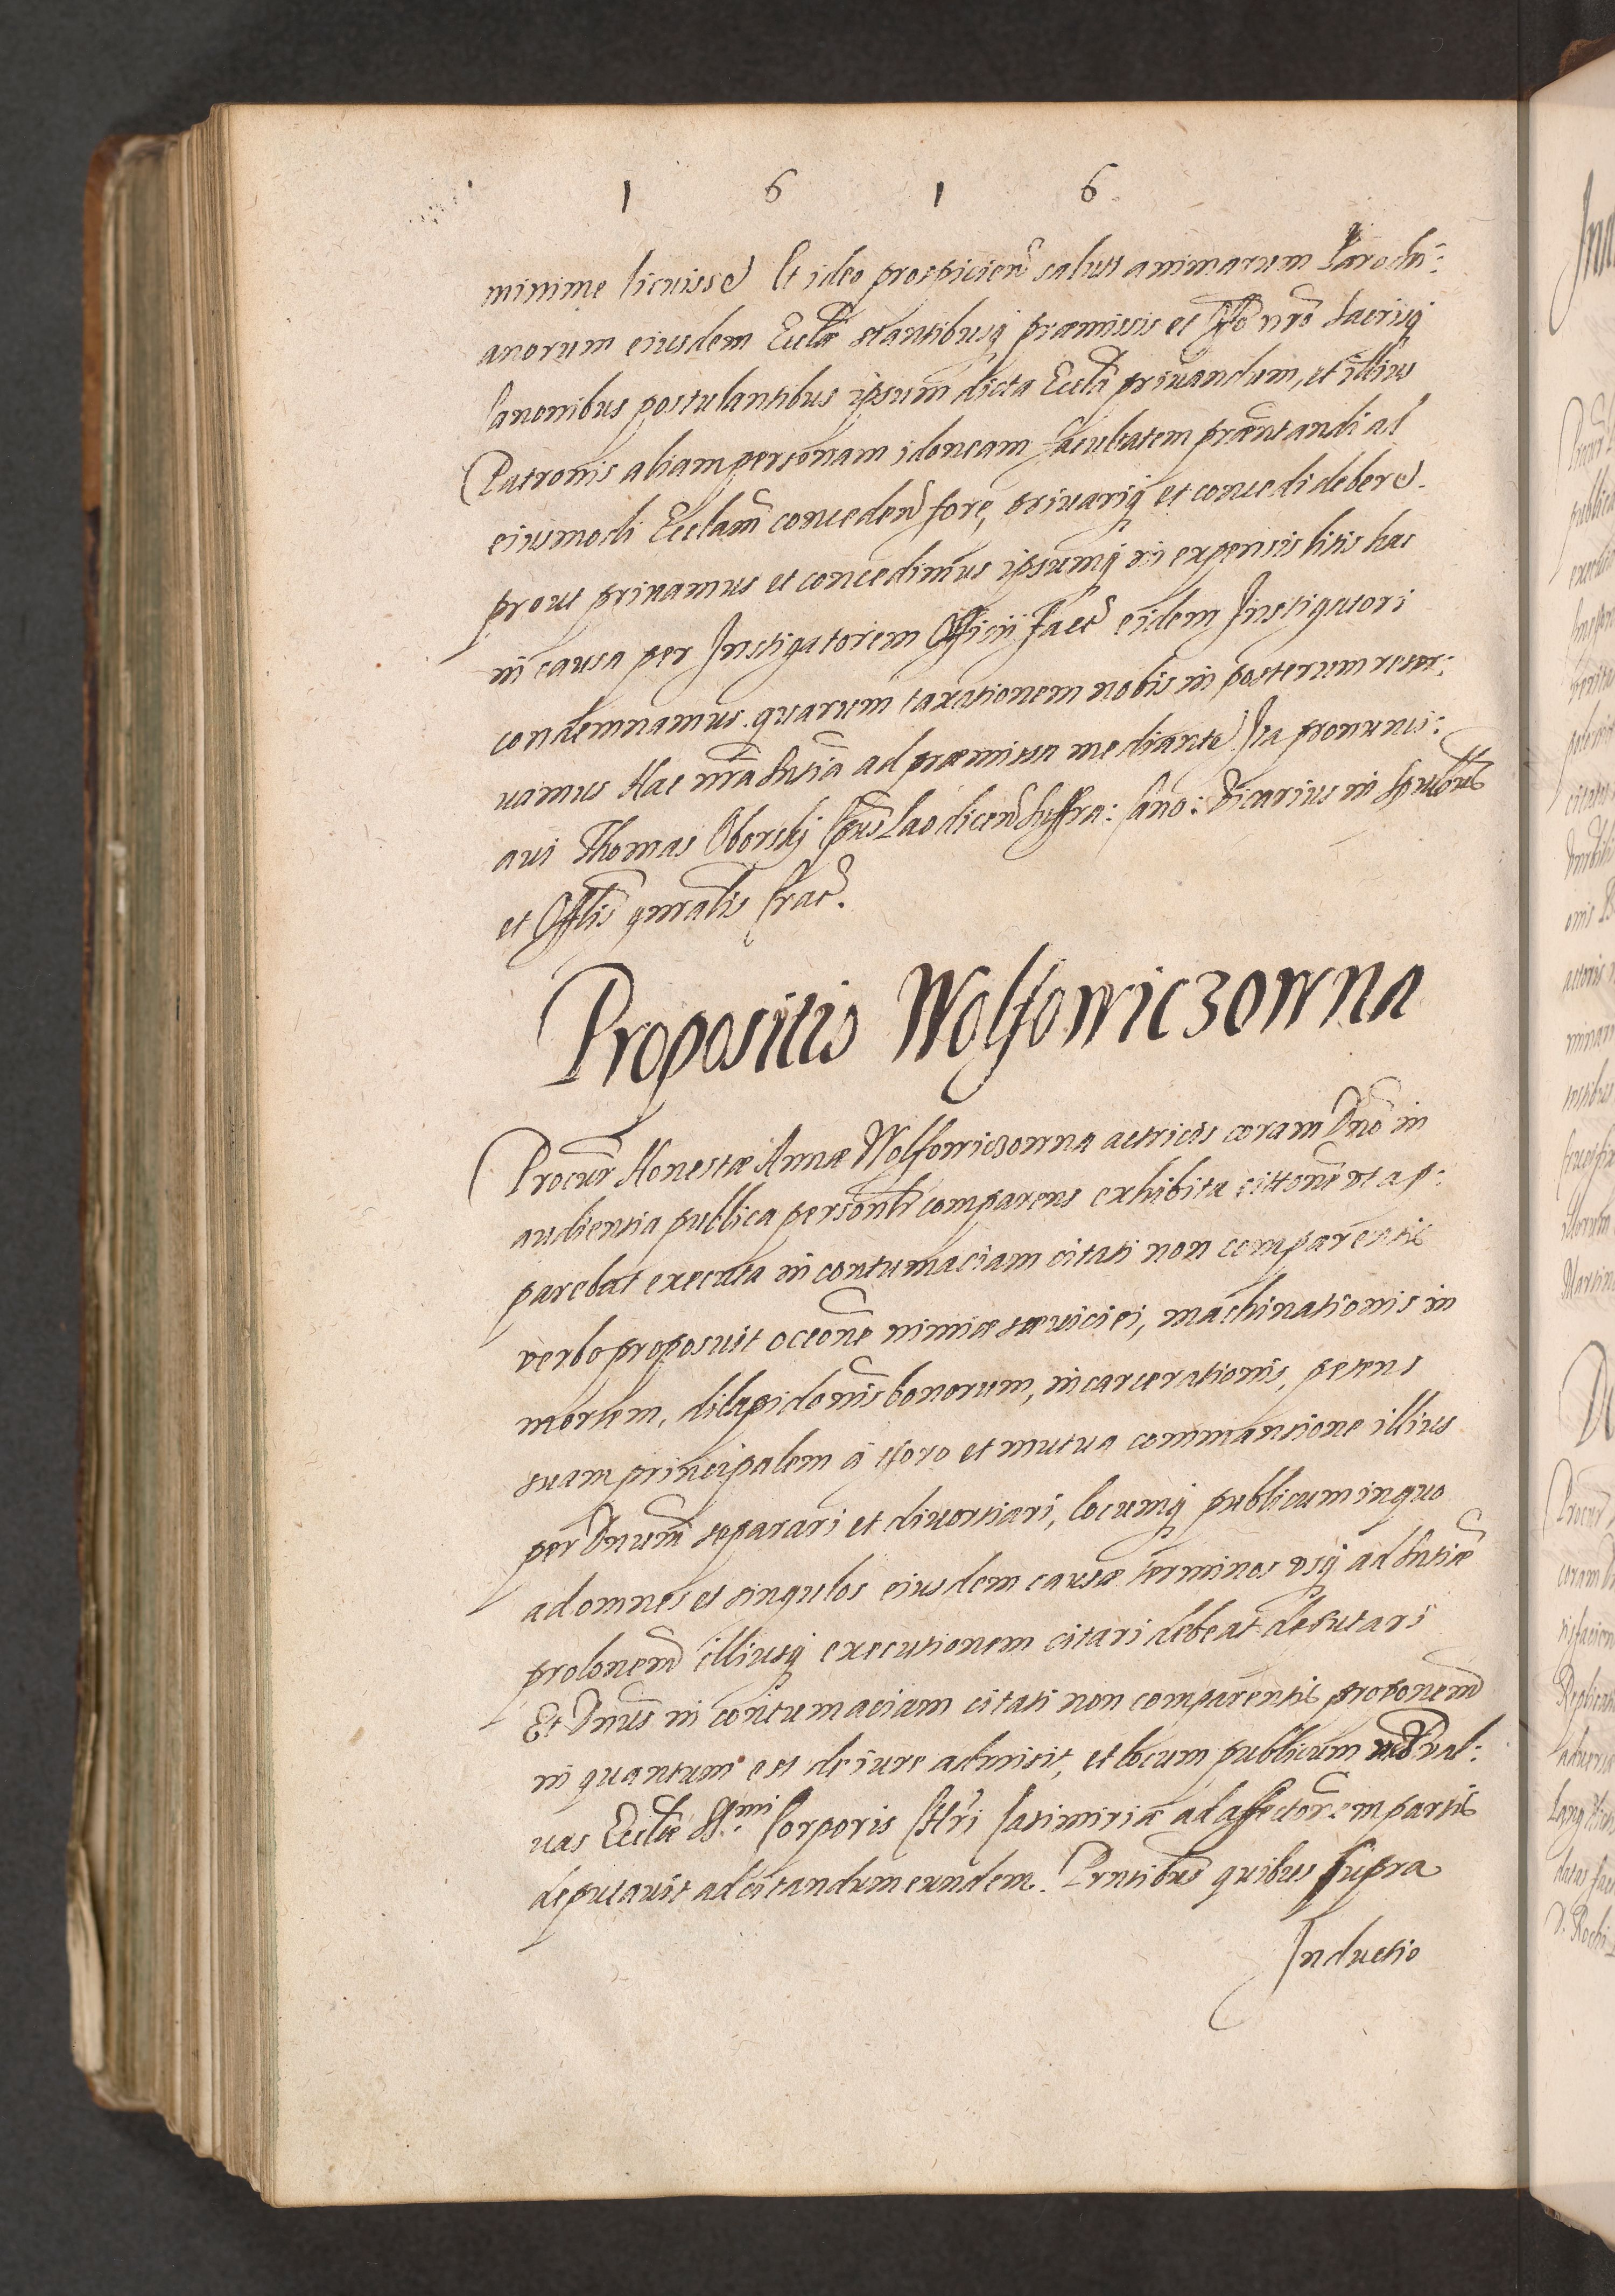 1 6 1 6
minime licuisse Et ideo prospicien saluti animarum Parochi:
anorum eiusdem Eccłæ stantibusq præmissis et Offo nrō Sacrisq
Canonibus postulantibus ipsum dicta Eccłā priuandum, et illius
Patronis aliam personam idoneam facultatem præntandi ad
eiusmodi Ecclam conceden fore, priuariq et concedi debere.
prout priuamus et concedimus ipsumq in expensis litis hac
in causa per Instigatorem Officij fact eidem Instigatori
condemnamus. quarum taxationem nobis in posterum reser:
uamus Hac nrā sntiā ad præmissa mediante Ita pronunci:
aui Thomas Oborskj Epūs Laodicen Suffra: Cano: Vicarius in Spūalibus
et Offlis gnralis Crac.
Propositio Wolfowiczowna
Procur Honestæ Annæ Wolfowiczowna actricis coram Dnō in
audientia publica personlr comparens exhibita cittone vt ap:
parebat executa in contumaciam citati non comparentis
verbo proposuit occone nimiæ sæuiciei, machinationis in
mortem, dilapidonis bonorum, incarcerationis, petens
suam principalem à thoro et mutua commansione illius
per Dnum separari et diuortiari, locumq publicum in quo
ad omnes et singulos eiusdem causæ terminos vsq ad sntiæ
prolonem illiusq executionem citari debeat deputari
Et Dnus in contumaciam citati non comparentis proponem
in quantum est de iure admisit, et locum publicum val:
uas Eccłæ SSmi Corporis Chri Casimiriæ ad affectonem partis
deputauit ad citandum eundem. Prntibus quibus supra
Inductio